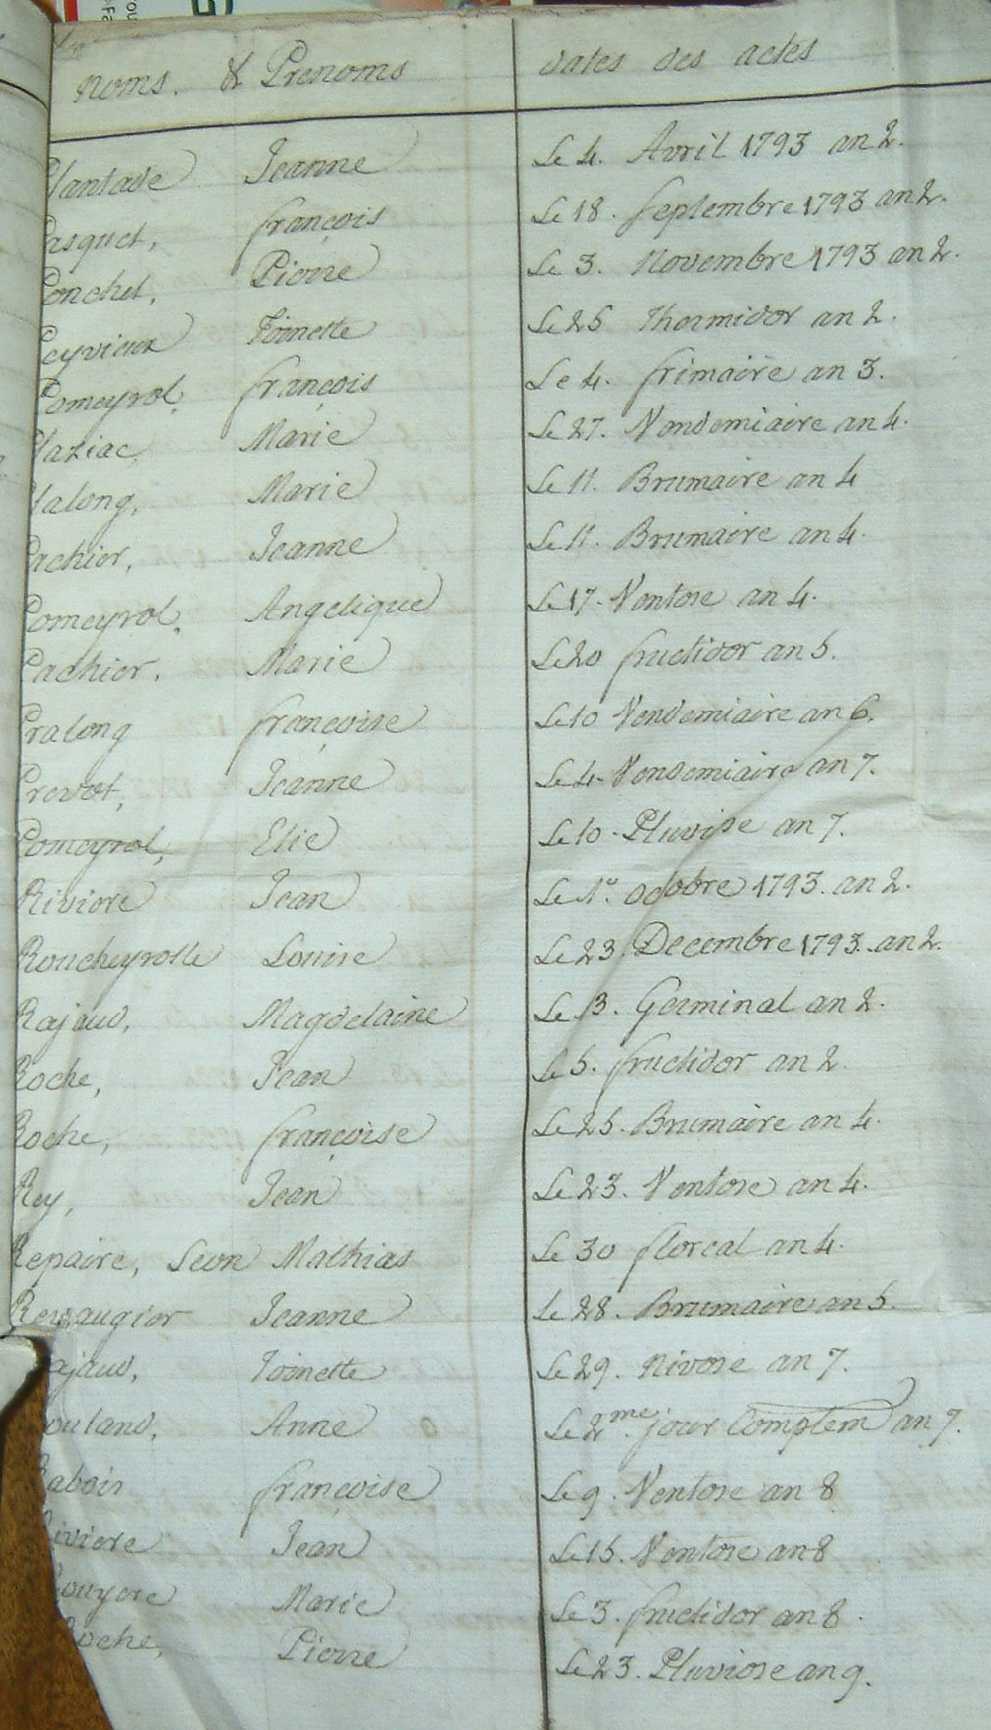 noms. & Prenoms dates des actes
Plantade Jeanne Le 4. Avril 1793 an 2.
Pasquet, françois Le 18. septembre 1793 an 2.
Ponchet, Pierre Le 3. Novembre 1793 an 2.
Peyvieux Toinette Le 25 Thermidor an 2.
Pomeyrol, françois Le 4. frimaire an 3.
Plaziac, Marie Le 27. Vendemiaire an 4.
Palong, Marie Le 11. Brumaire an 4
Pachier, Jeanne Le 11. Brumaire an 4.
Pomeyrol, Angelique Le 17. Ventose an 4.
Pachier, Marie Le 20 fructidor an 5.
Pralong françoise Le 10 Vendemiaire an 6.
Prevot, Jeanne Le 4. Vendemiaire an 7.
Pomeyrol, Elie Le 10. Pluviose an 7.
Riviere Jean Le 1er octobre 1793. an 2.
Roucheyrolle Louise Le 23. Decembre 1793. an 2.
Rajaud, Magdelaine Le 13. Germinal an 2.
Roche, Jean Le 5. fructidor an 2.
Roche, françoise Le 25. Brumaire an 4.
Rey, Jean Le 23. Ventose an 4.
Repaire, Leon Mathias Le 30 floreal an 4.
Jeanne Le 28. Brumaire an 5.
ajaud, Toinette Le 29. Nivose an 7.
ouland, Anne Le 2me jour Complem an 7.
Rabois françoise Le 9. Ventose an 8
Riviere Jean Le 15. Ventose an 8
ouyere Marie Le 3. fructidor an 8.
Roche, Pierre Le 23. Pluviose an 9.